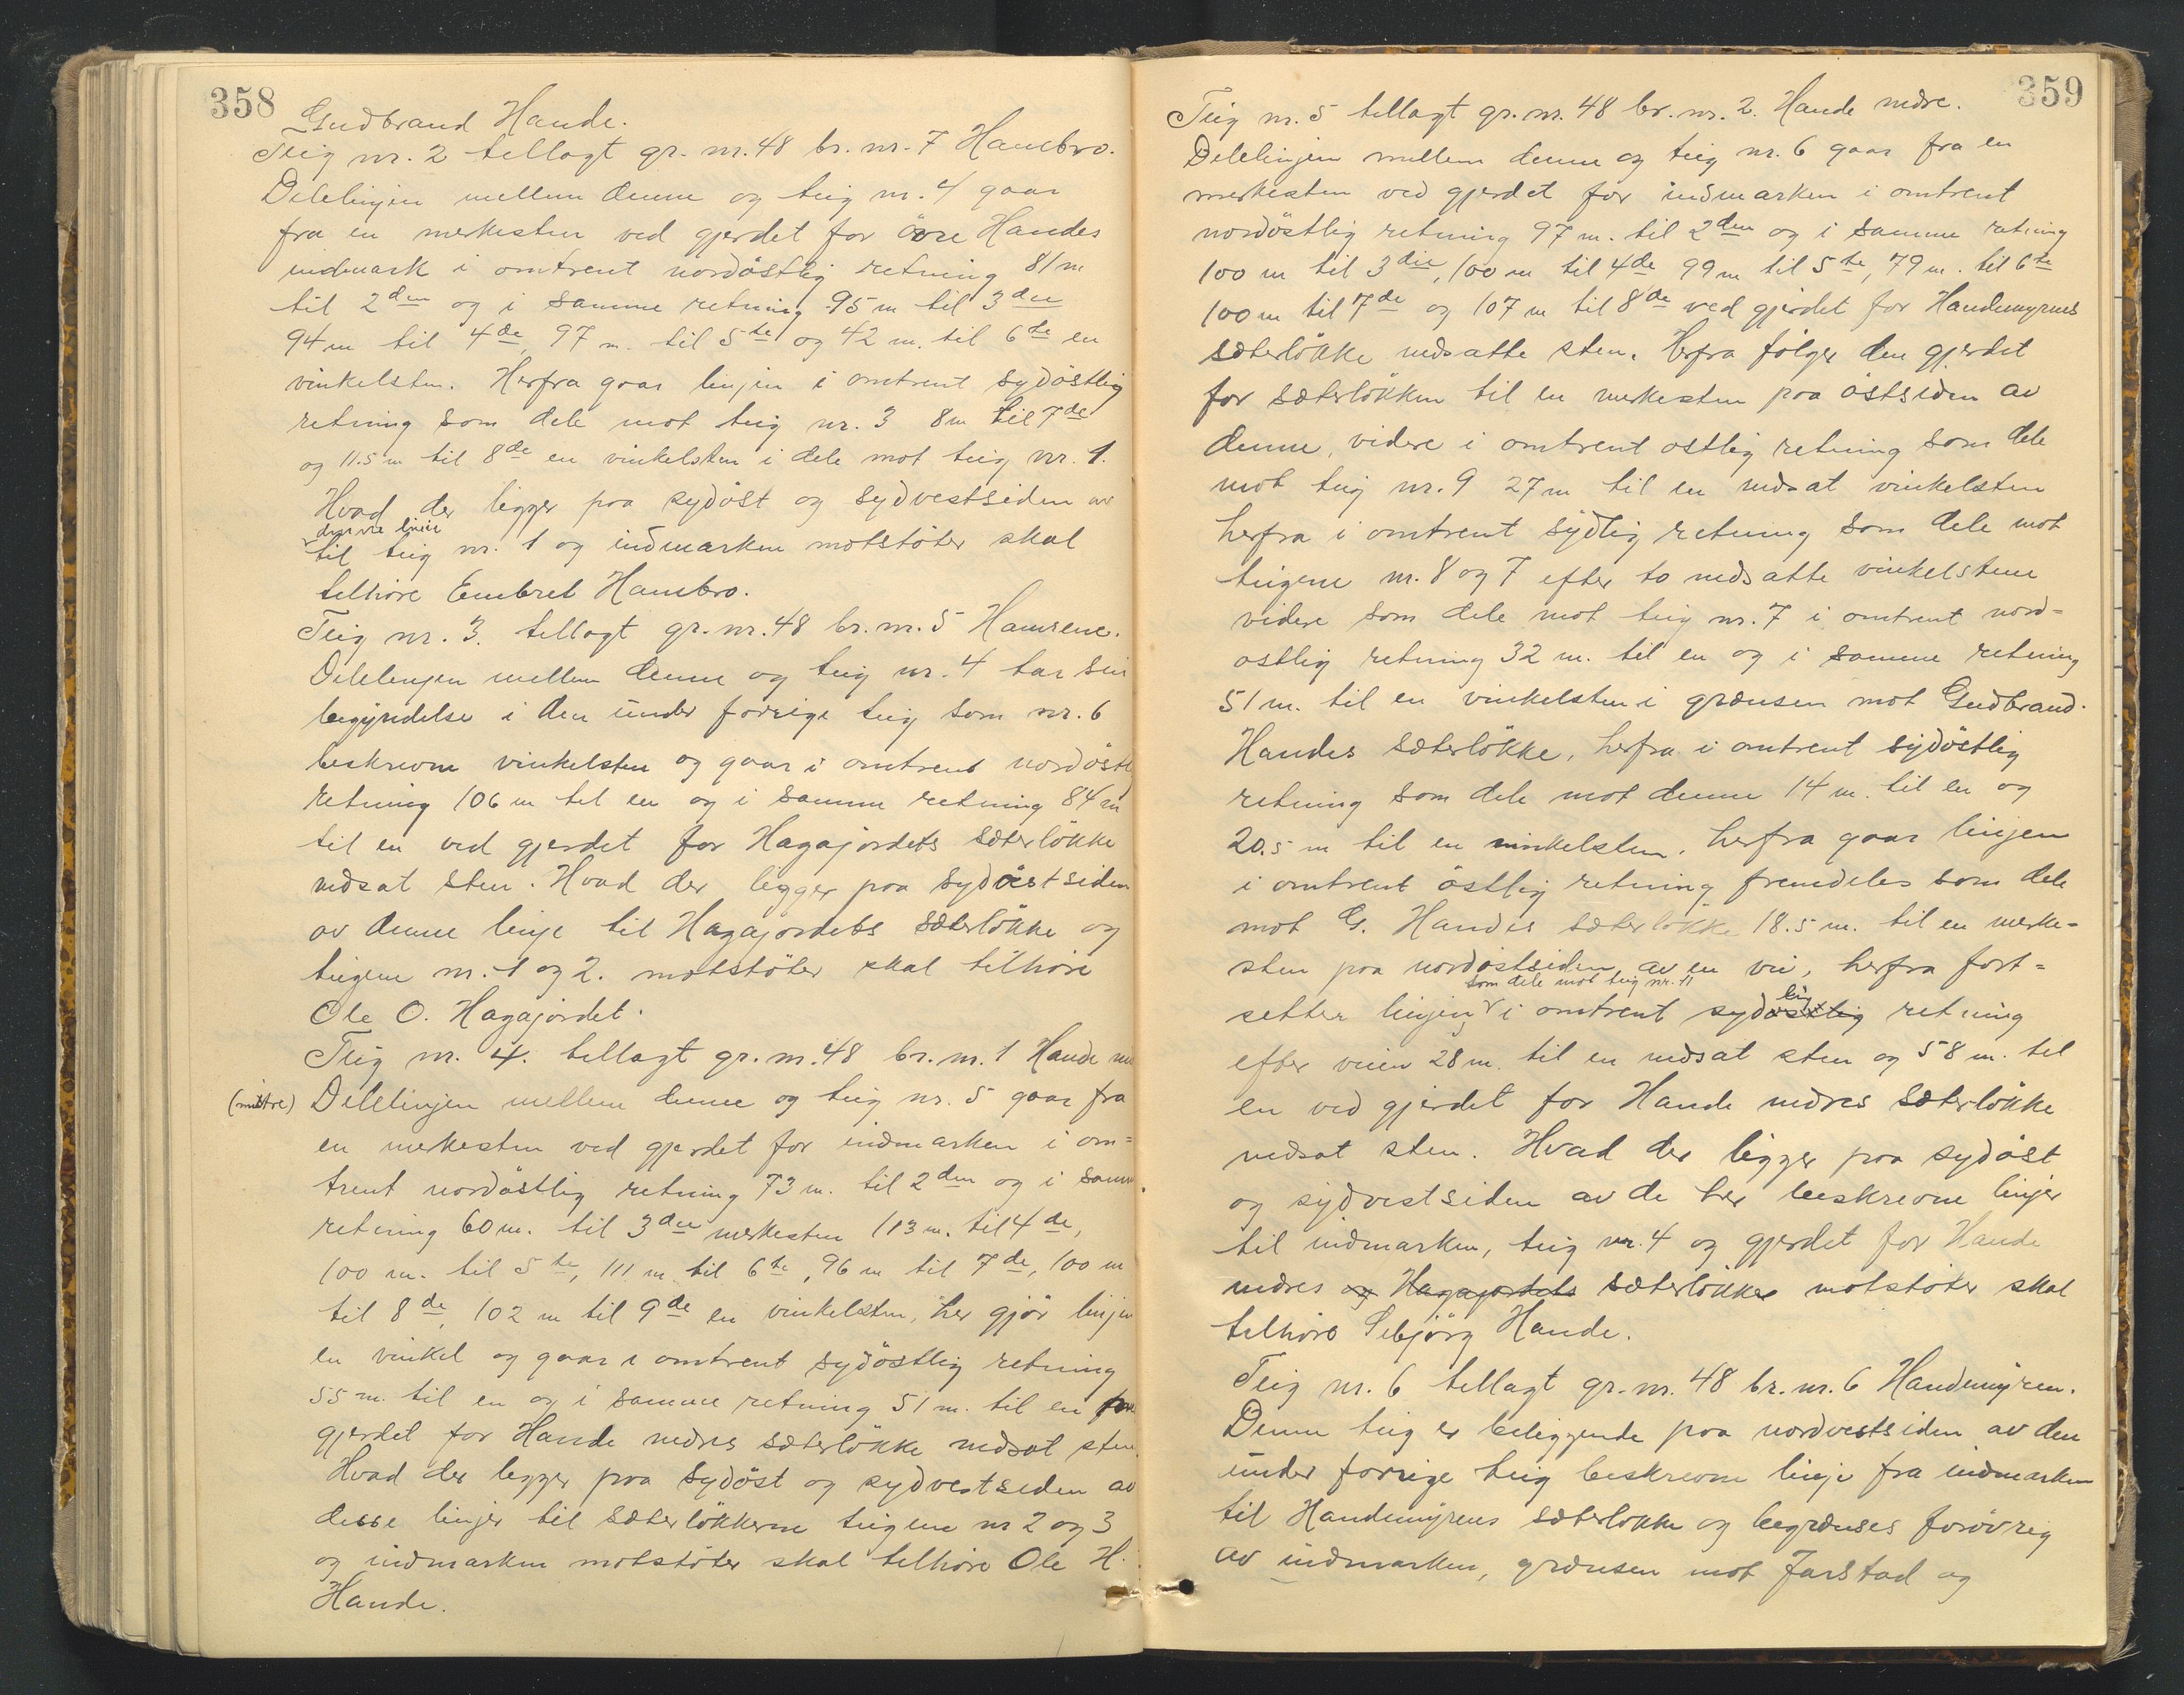 358
Gudbrand Hande.
Teig nr. 2 tillagt gr. nr. 48 br. nr. 7 Hambro.
Delelinjen mellem denne og teig nr. 4 gaar
fra en merkesten ved gjerdet for övre Handes
indmark i omtrent nordöstlig retning 81 m
til 2den og i samme retning 95 m til 3die
94 m til 4de, 97 m. til 5te og 42 m. til 6te en
vinkelsten. Herfra gaar linjen i omtrent sydöstlig
retning som dele mot teig nr. 3 8 m til 7de
og 11.5 m til 8de en vinkelsten i dele mot teig nr. 1.
Hvad der ligger paa sydöst og sydvestsiden av
denne linie
til teig nr. 1 og indmarken motstöter skal
tilhöre Embret Hambro.
Teig nr. 3. tillagt gr. nr. 48 br. nr. 5 Hamrene.
Delelinjen mellem denne og teig nr. 4 tar sin
begyndelse i den under forrige teig som nr. 6
beskrevne vinkelsten og gaar i omtrent nordöstl
retning 106 m til en og i samme retning 84 m
til en ved gjerdet for Hagajordets sæterlökke
nedsat sten. Hvad der ligger paa sydöstsiden
av denne linje til Hagajordets sæterlökke og
teigene nr. 1 og 2. motstöter skal tilhöre
Ole O. Hagajordet.
Teig nr. 4. tillagt gr. nr. 48 br. nr. 1 Hande
(midtre) Delelinjen mellem denne og teig nr. 5 gaar fra
en merkesten ved gjerdet for indmarken i om=
trent nordöstlig retning 73 m. til 2den og i samme
retning 60 m. til 3die merkesten 113 m. til 4de,
100 m. til 5te, 111 m til 6te, 96 m til 7de, 100 m
til 8de, 102 m til 9de en vinkelsten, her gjör linjen
en vinkel og gaar i omtrent sydöstlig retning
55 m. til en og i samme retning 51 m. til en
gjerdet for Hande nedres sæterlökke nedsat sten
Hvad der ligger paa sydöst og sydvestsiden av
disse linjer til sæterlökkerne teigene nr 2 og 3
og indmarken motstöter skal tilhöre Ole H.
Hande.
359
Teig nr. 5 tillagt gr. nr. 48 br. nr. 2. Hande nedre.
Delelinjen mellem denne og teig nr. 6 gaar fra en
merkesten ved gjerdet for indmarken i omtrent
nordöstlig retning 97 m. til 2den og i samme retning
100 m til 3die, 100 m til 4de 99 m til 5te, 79 m. til 6te
100 m til 7de og 107 m til 8de ved gjerdet for Handemyrens
sæterlökke nedsatte sten. Herfra fölger den gjerdet
for sæterlökken til en merkesten paa östsiden av
denne, videre i omtrent östlig retning som dele
mot teig nr. 9 27 m til en nedsat vinkelsten
herfra i omtrent sydlig retning som dele mot
teigene nr. 8 og 7 efter to nedsatte vinkelstene
videre som dele mot teig nr. 7 i omtrent nord=
ostlig retning 32 m. til en og i samme retning
51 m. til en vinkelsten i grænsen mot Gudbrand
Handes sæterlökke, herfra i omtrent sydöstlig
retning som dele mot denne 14 m. til en og
20.5 m til en vinkelsten. herfra gaar linjen
i omtrent östlig retning fremdeles som dele
mot G. Handes sæterlökke 18.5 m. til en merke=
sten paa nordöstsiden av en vei, herfra fort=
som dele mot teig nr. 11
setter linjen i omtrent sydöstlig lig retning
efter veien 28 m. til en nedsat sten og 58 m. til
en ved gjerdet for Hande nedres sæterlökke
nedsat sten. Hvad der ligger paa sydöst
og sydvestsiden av de her beskrevne linjer
til indmarken, teig nr. 4 og gjerdet for Hande
nedres og Hagajordets sæterlökke motstöter skal
tilhöre Sebjörg Hande.
Teig nr. 6 tillagt gr. nr. 48 br. nr. 6 Handemyren.
Denne teig er beliggende paa nordvestsiden av den
under forrige teig beskrevne linje fra indmarken
til Handemyrens sæterlökke og begrænses forövrig
av indmarken, grænsen mot Jarstad og